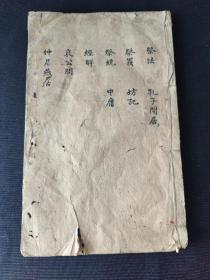 祭法
孔子閒居
祭義
坊記
祭統
中庸
經解
哀公問
仲尼燕居